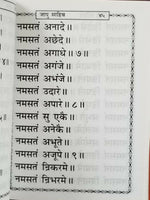 जापु साहिब
४५
नमसतं अनादे॥
नमसतं अछेदे॥
नमसतं अगाधे॥७॥
नमसतं अगंजे॥
नमसतं अभंजे॥
नमसतं उदारे॥
नमसतं अपारे॥८॥
नमसतं सु एकै॥
नमसतं अनेकै॥
नमसतं अभूते॥
नमसतं अजूपे॥९॥
नमसतं न्रिकरमे॥
नमसतं न्रिभरमे॥